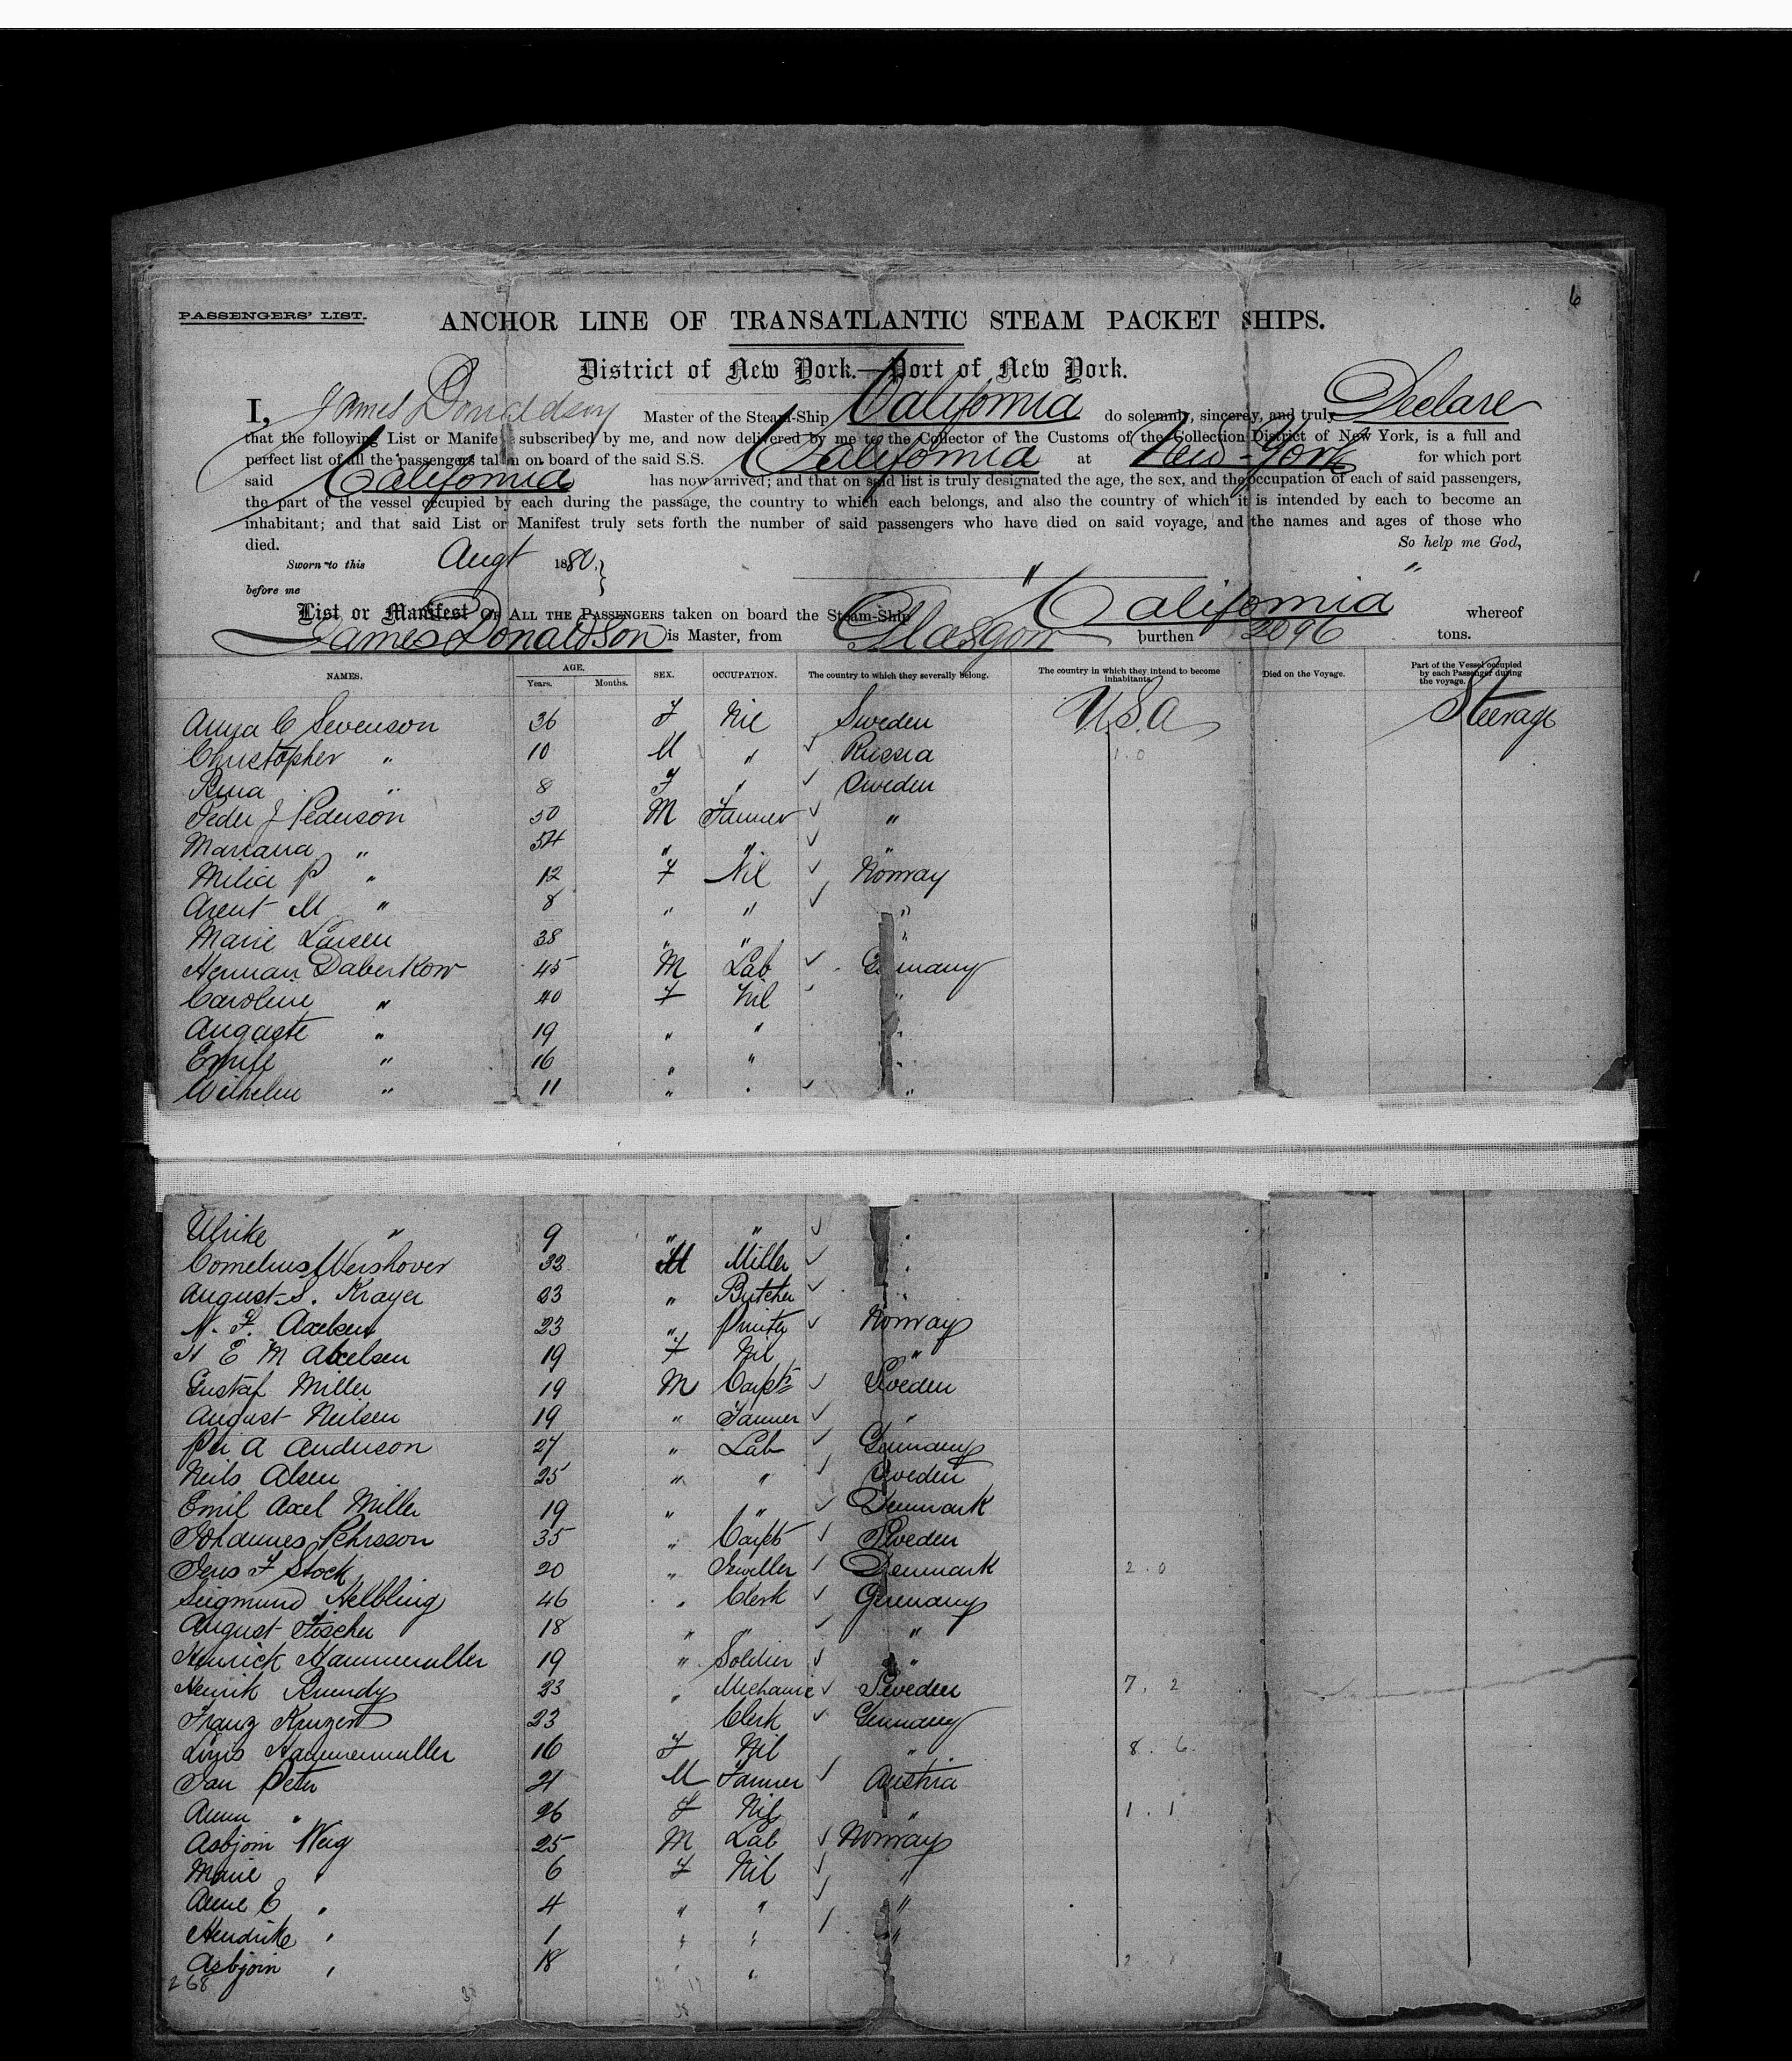 6
PASSENGERS' LIST.
ANCHOR LINE OF TRANSATLANTIC STEAM PACKET SHIPS.
District of New York.—Port of New York.
I, James Donaldson Master of the Steam-Ship California do solemnly, sincerely, and truly Declare
that the following List or Manifest subscribed by me, and now delivered by me to the Collector of the Customs of the Collection District of New York, is a full and
perfect list of all the passengers taken on board of the said S.S. California at New-York for which port
said California has now arrived; and that on said list is truly designated the age, the sex, and the occupation of each of said passengers,
the part of the vessel occupied by each during the passage, the country to which each belongs, and also the country of which it is intended by each to become an
inhabitant; and that said List or Manifest truly sets forth the number of said passengers who have died on said voyage, and the names and ages of those who
died. So help me God,
Sworn to this Augt 1880.
before me
List or Manifest OF ALL THE PASSENGERS taken on board the Steam-Ship California whereof
James Donaldson is Master, from Glasgow burthen 2096 tons.
NAMES. AGE. Years. Months. SEX. OCCUPATION. The country to which they severally belong. The country in which they intend to become inhabitants. Died on the Voyage. Part of the Vessel occupied by each Passenger during the voyage.
Anna C Sevenson 36 F Nil Sweden U.S.a Steerage
Christopher " 10 M " Russia
" 8 F " Sweden
Peder J Pederson 50 M Farmer "
Mariana " 54 " " "
Milia P " 12 F Nil Norway
Arent M " 8 " " "
Marie Larsen 38 " " "
Herman Daberkow 45 M Lab Germany
Caroline " 40 F Nil "
Auguste " 19 " " "
Emile " 16 " " "
Wilhelm " 11 " " "
Ulrike " 9 " " "
Cornelius Wershover 32 M Miller "
August S. Krayer 23 " Butcher "
N. F. Axelsen 23 " Printer Norway
H E M Axelsen 19 F Nil "
Gustaf Miller 19 M Carptr Sweden
August Neilsen 19 " Farmer "
Per A Anderson 27 " Lab Germany
Neils Olsen 25 " " Sweden
Emil Axel Miller 19 " " Denmark
Johannes Pehrsson 35 " Carpt Sweden
Jens F Stock 20 " Jeweller Denmark 2.0
Seigmund Helbling 46 " Clerk Germany
August Fischer 18 " " "
Henrick Hammemuller 19 " Soldier "
Henrik 23 " Mechanic Sweden 7. 2
Franz 23 Clerk Germany
Hammermuller 16 F Nil " 8. 6.
Jan Peter 21 M Farmer Austria
Anna " 26 F Nil " 1. 1
Asbjorn Weig 25 M Lab Norway
Marie " 6 F Nil "
Anne E " 4 " " "
Hendrike " 1 " " "
Asbjorn " 18 " "
268